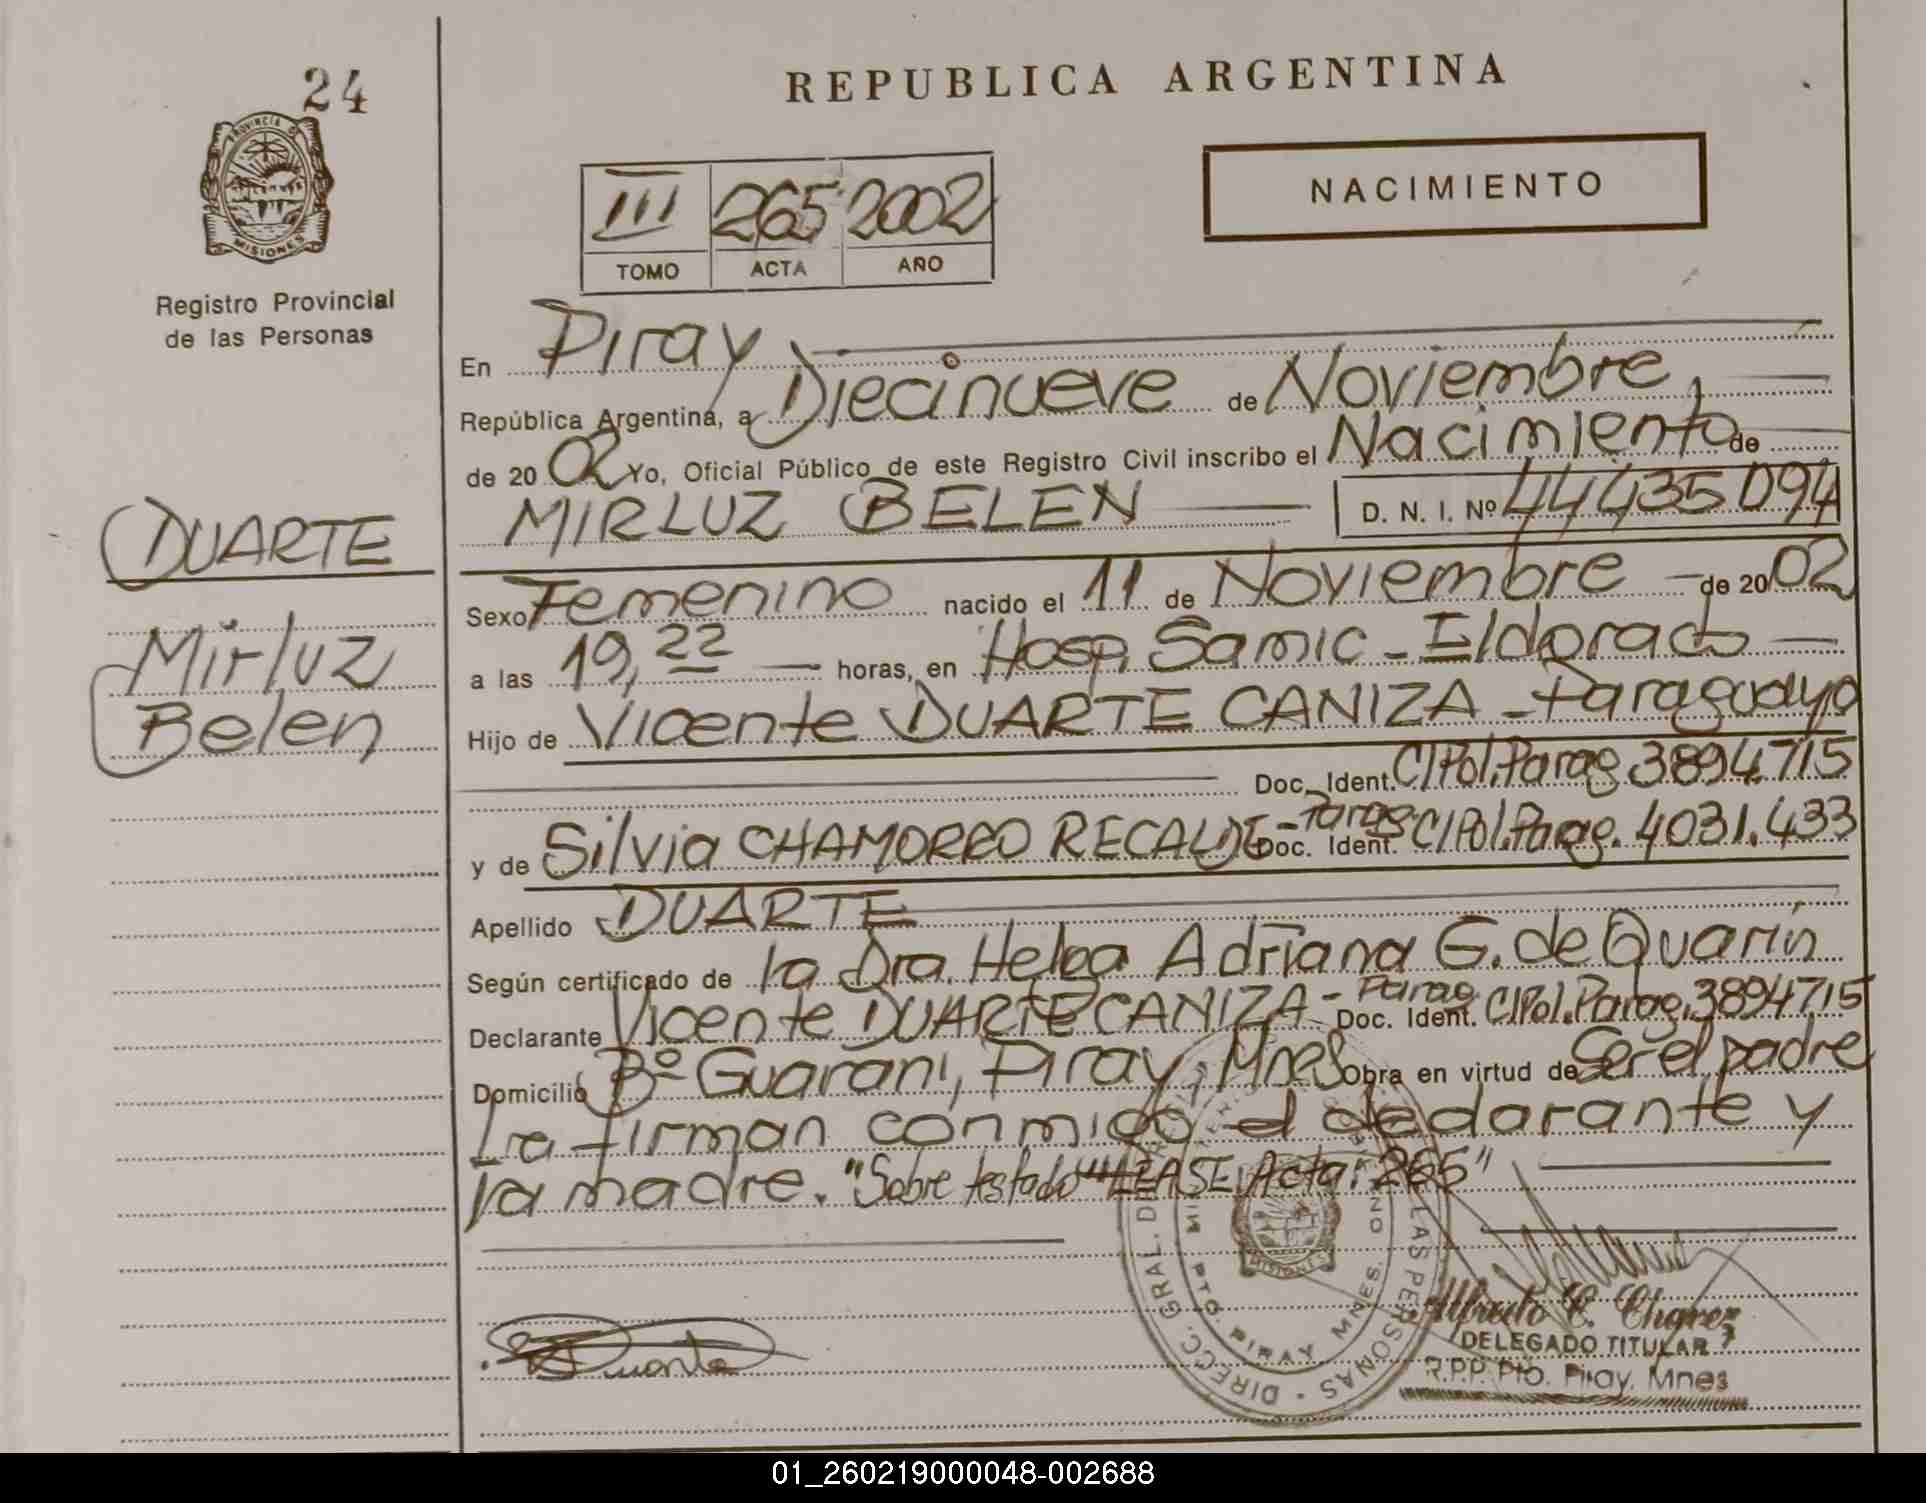 24
REPUBLICA ARGENTINA
PROVINCIA DE
MISIONES
Registro Provincial
de las Personas
NACIMIENTO
III 265 2002
TOMO ACTA AÑO
En Piray
República Argentina, a Diecinueve de Noviembre
de 20 02 Yo, Oficial Público de este Registro Civil inscribo el Nacimiento de
MIRLUZ BELEN D. N. I. Nº 44435094
DUARTE
Mirluz
Belen
Sexo Femenino nacido el 11 de Noviembre de 20 02
a las 19,22 horas, en Hosp. Samic - Eldorado
Hijo de Vicente DUARTE CANIZA - Paraguayo
Doc. Ident. C/Pol. Parag 3894715
y de Silvia CHAMORRO RECALDE - Parag. Doc. Ident. C/Pol. Parag. 4031.433
Apellido DUARTE
Según certificado de la Dra. Helga Adriana G. de Quarín
Declarante Vicente DUARTE CANIZA - Parag. Doc. Ident. C/Pol. Parag. 3894715
Domicilio Bº Guarani, Piray, Mnes Obra en virtud de Ser el padre
Lea firman conmigo el declarante y
la madre. "Sobre testado" "LEASE, Acta: 265"
DIRECC. GRAL. LAS PERSONAS
PTO. PIRAY MNES.
MISIONES
Duarte
Alfredo C. Chavez
DELEGADO TITULAR
R.P.P. Pto. Piray. Mnes
01_260219000048-002688